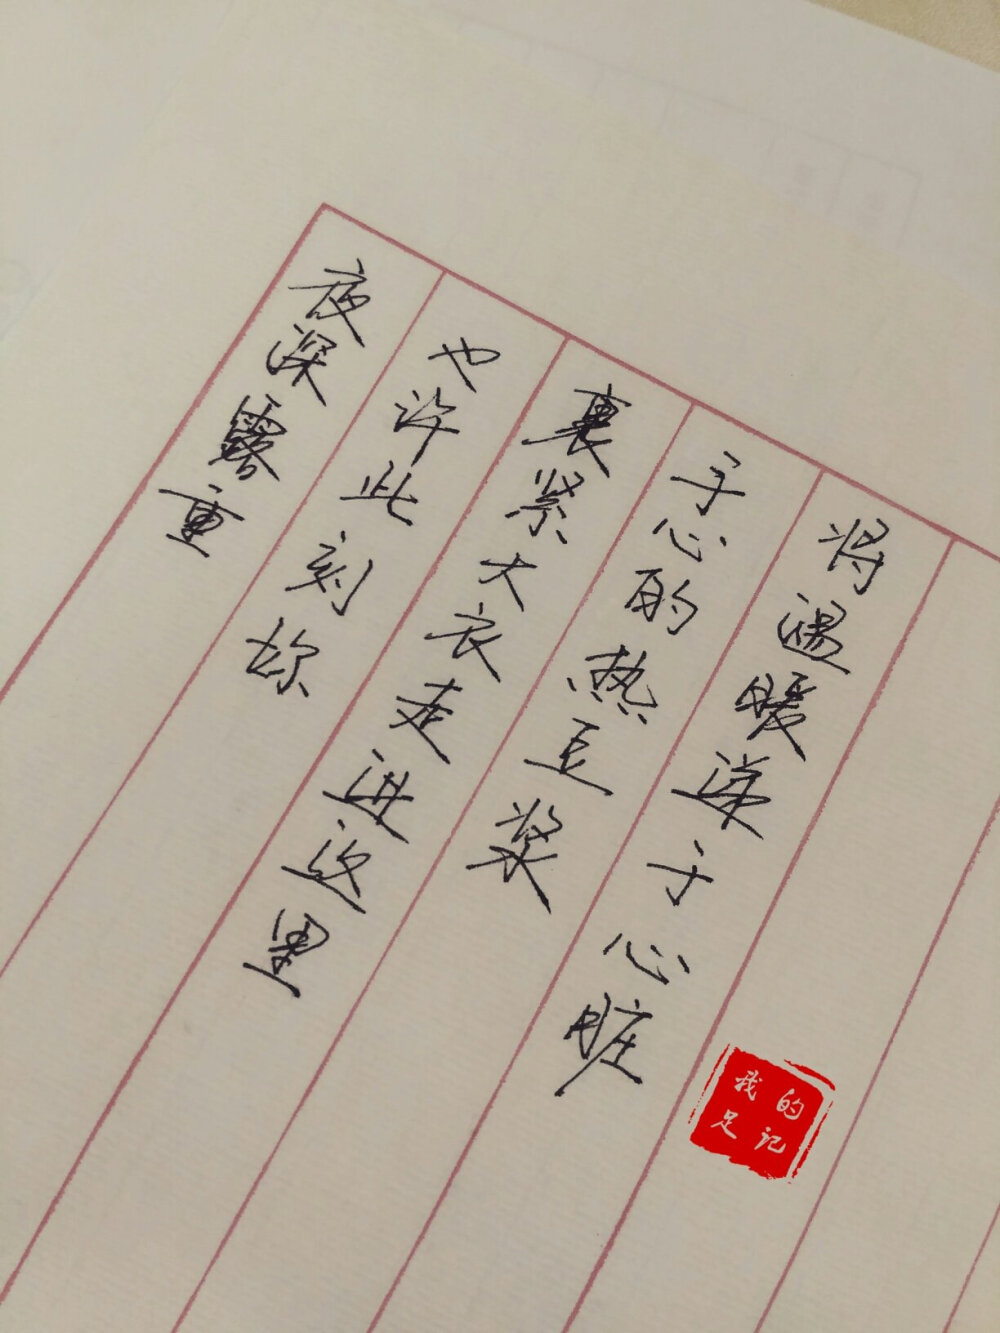 夜深露重
也许此刻妳
裹紧大衣走进这里
手心的热豆浆
将温暖递于心脏
我的
足记